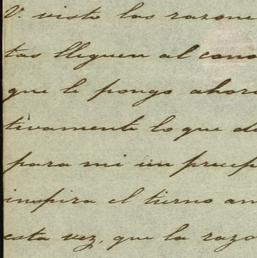 V. visto las razone
tas lleguen al cono
que le pongo ahora
tivamente lo que de
para mi un precep
inspira el tierno am
esta vez, que la razo